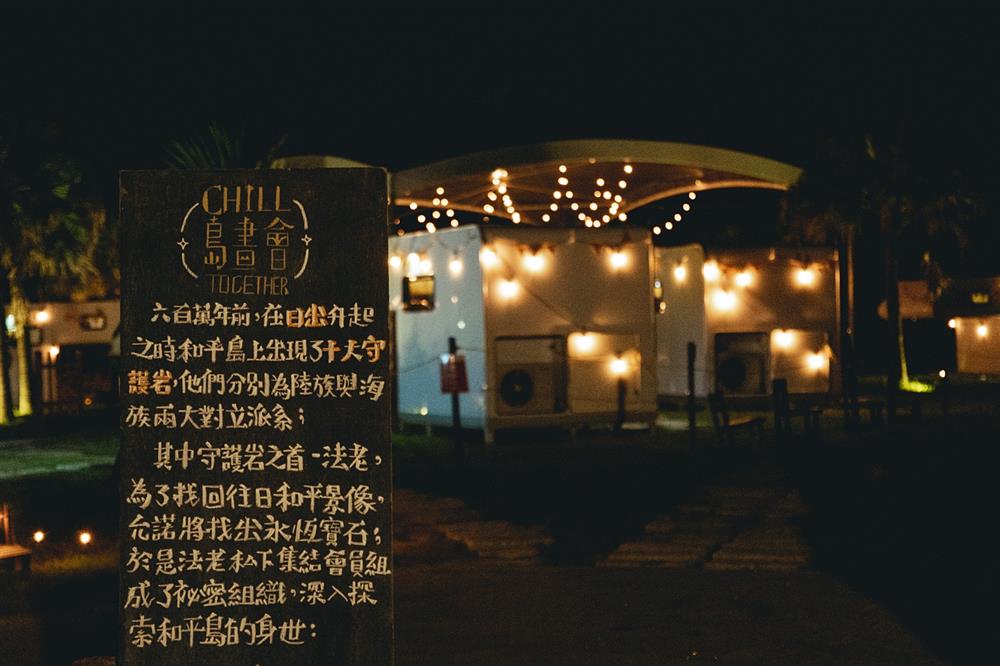 CHILL
島晝會
TOGETHER
六百萬年前，在日出升起
之時和平島上出現了十大守
護岩，他們分別為陸族與海
族兩大對立派系；
其中守護岩之首-法老，
為了找回往日和平景像，
允諾將找出永恆寶石；
於是法老私下集結會員組
成了祕密組織，深入探
索和平島的身世：